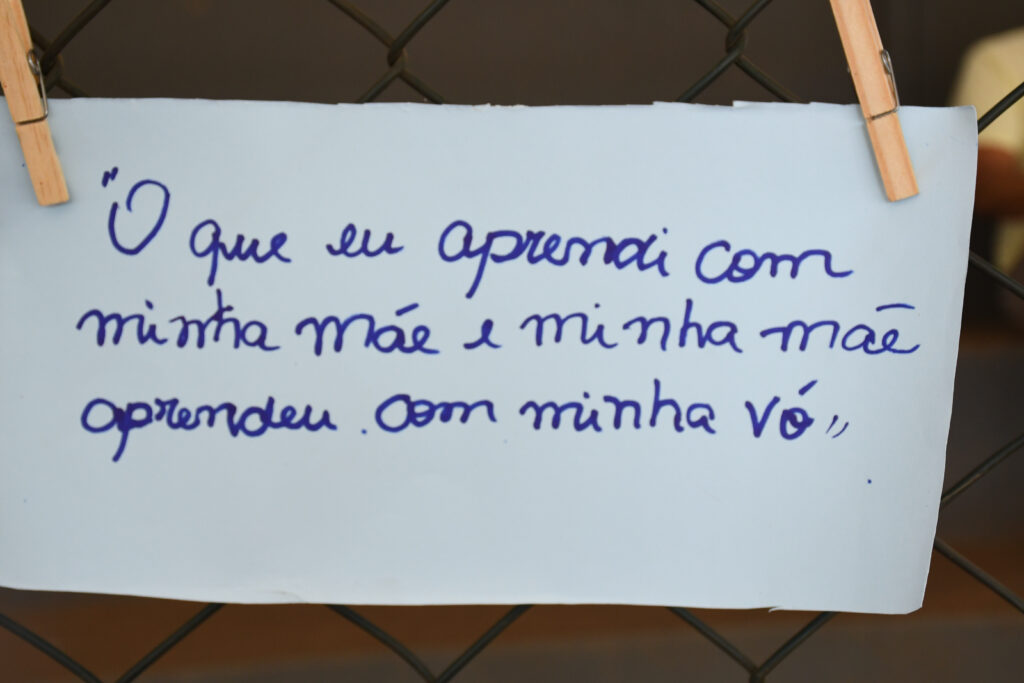 "O que eu aprendi com
minha mãe e minha mãe
aprendeu. com minha vó"